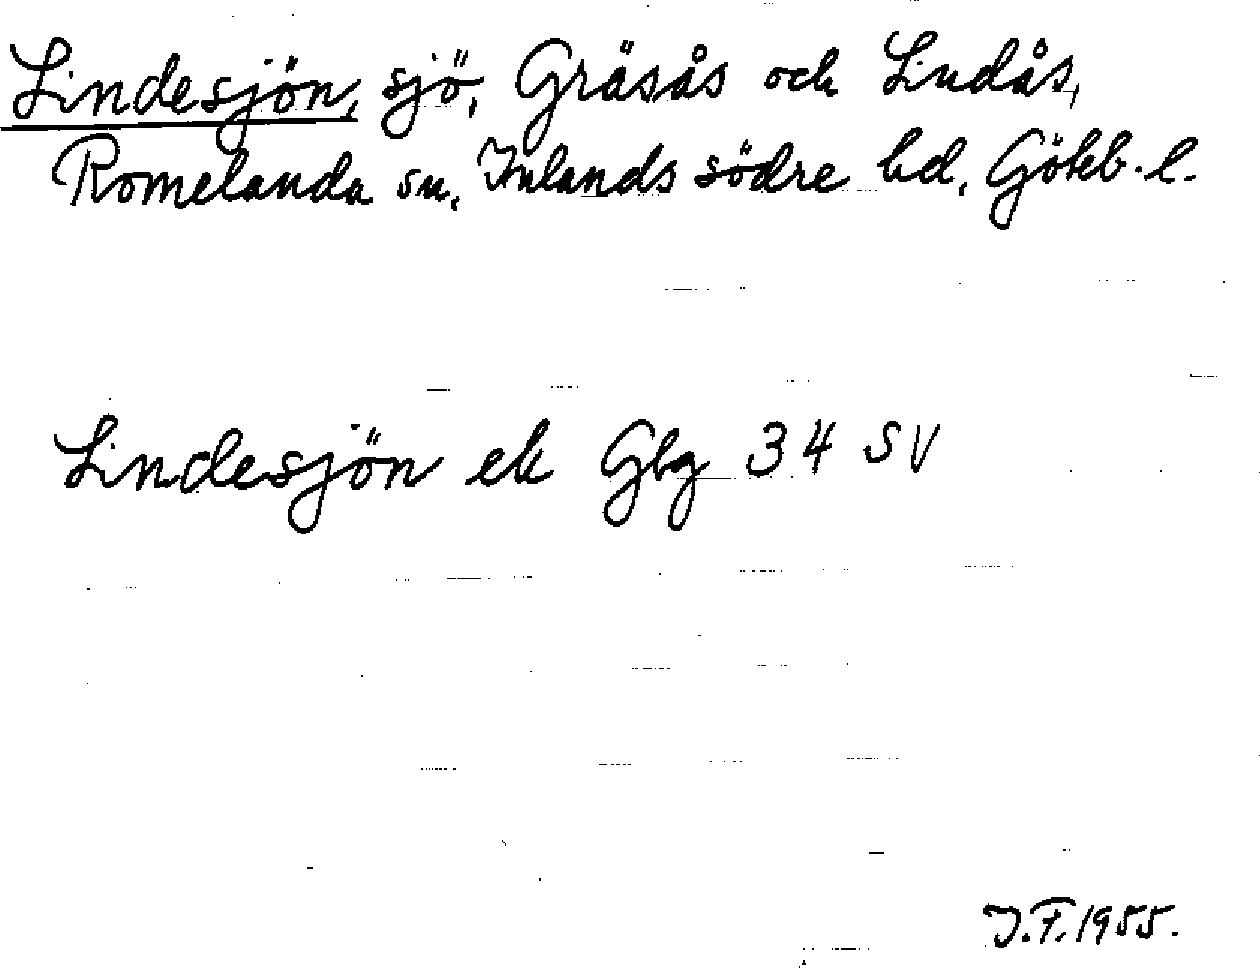 Lindesjön, sjö, Gräsås och Lindås,
Romelanda sn, Inlands södre hd, Göteb. l.
Lindesjön ek Gbg 34 SV
J.F. 1955.